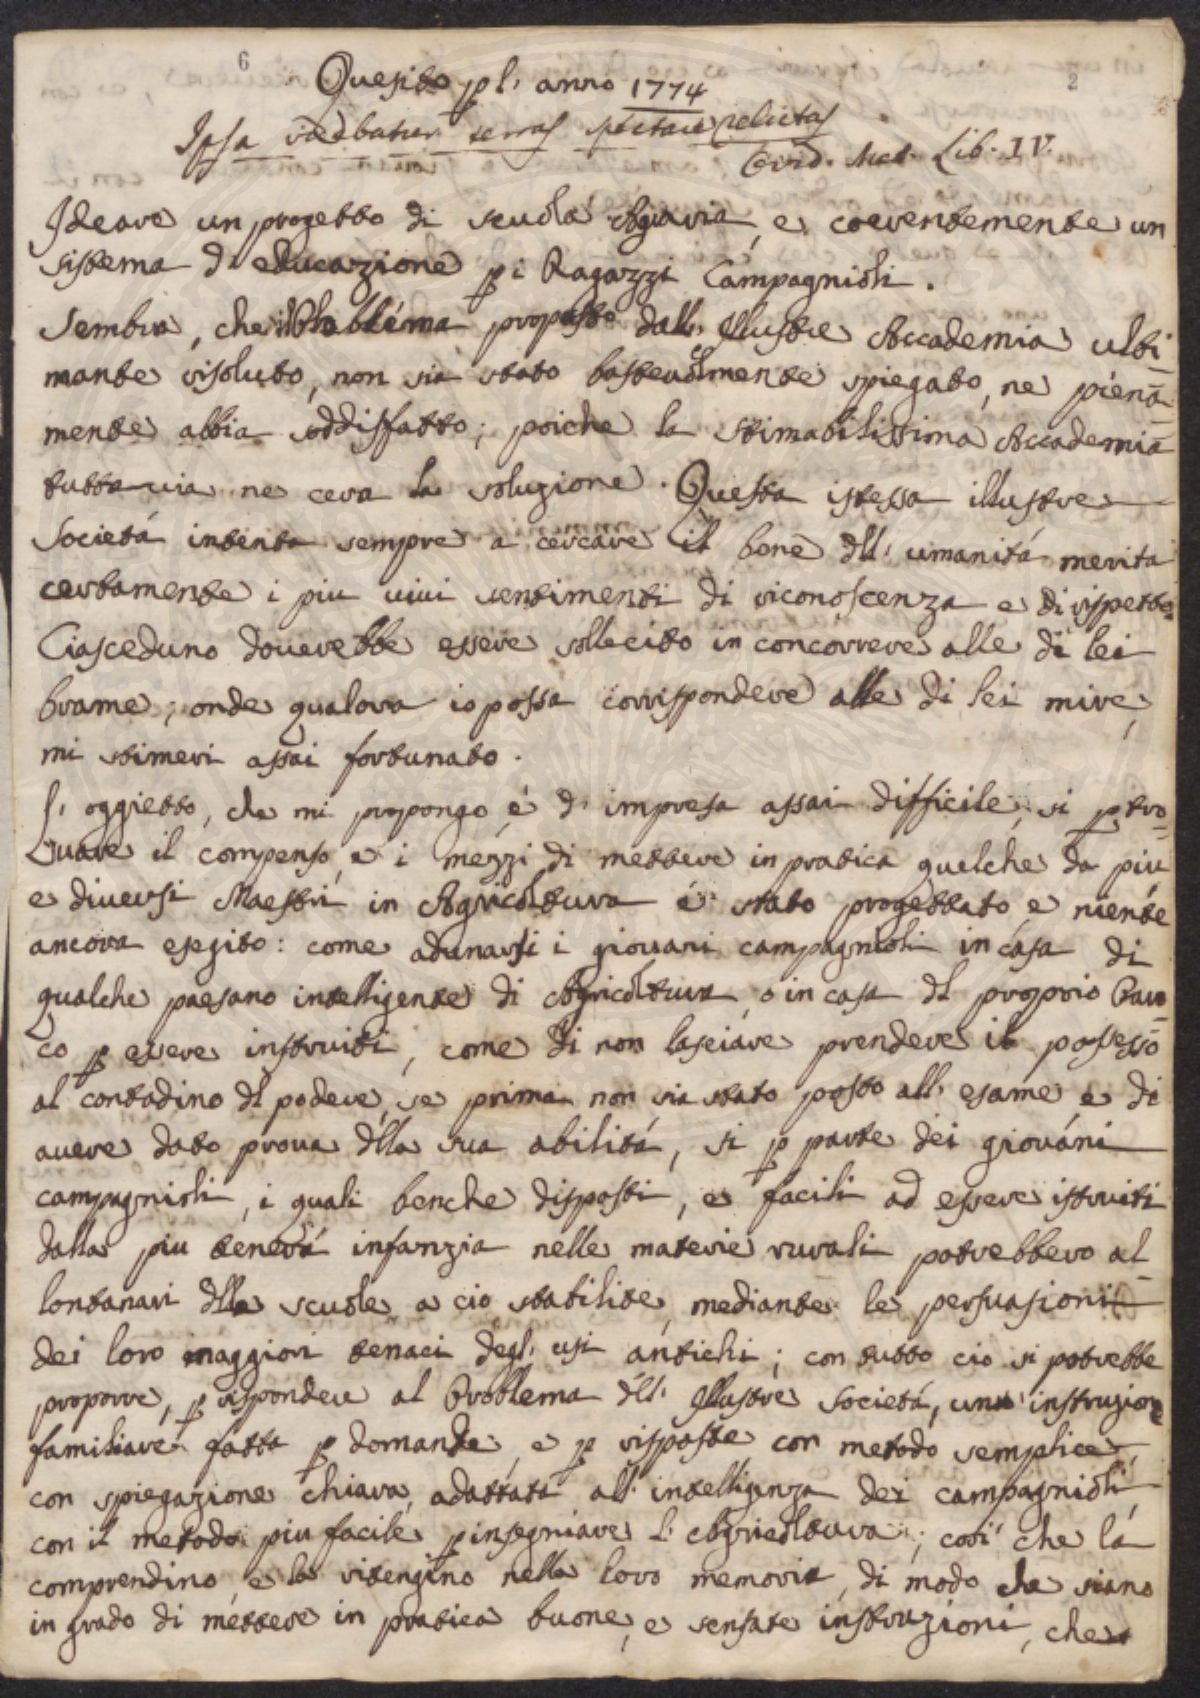 6
2
Quesito pl' anno 1774
Ipsa videbatur terras spectare relictas
Ovid. Met. Lib. IV.
Ideare un progetto di scuola Agraria, e coerentemente un
sistema di educazione p i Ragazzi Campagnioli.
Sembra, che il Problema proposto dall' Illustre Accademia ulti-
mante risoluto, non sia stato bastevolmente spiegato, ne piena-
mente abbia soddisfatto; poiche la stimabilissima Accademia
tutta via ne cerca la soluzione. Questa istessa illustre
Societá intenta sempre a cercare il bene dll' umanitá merita
certamente i piu vivi sentimenti di riconoscenza e di rispetto
Ciasceduno doverebbe essere sollecito in concorrere alle di lei
brame; onde qualora io possa corrispondere alle di lei mire,
mi stimeri assai fortunato.
l' oggietto, che mi propongo, é d' impresa assai difficile, si p tro-
vare il compenso, e i mezzi di mettere in pratica quelche da piu
e diversi Maestri in Agricoltura é stato progettato e niente
ancora esegito: come adunarsi i giovani campagnioli in casa di
qualche paesano intelligente di Agricoltura, o in casa dl proprio Paro-
co p essere instruiti, come di non lasciare prendere il possesso
al contadino dl podere, se prima non sia stato posto all' esame e di
avere dato prova dlla sua abilitá, si p parte dei giovani
campagnioli, i quali benche disposti, e facili ad essere istruiti
dalla piu tenera infanzia nelle materie rurali potrebbero al-
lontanari dlle scuole a cio stabilite, mediante le persuasioni
dei loro maggiori tenaci degl' usi antichi; con tutto cio si potrebbe
proporre, p rispondere al Problema dll' Illustre Societá, una instruzione
familiare fatta p domande, e p risposte con metodo semplice,
con spiegazione chiara, adattata all' intelligenza dei campagnioli,
con il metodo piu facile p insegniare l' Agricoltura; cosi che la
comprendino, e la ritengino nella loro memoria, di modo che siano
in grado di mettere in pratica buone, e sensate instruzioni, che